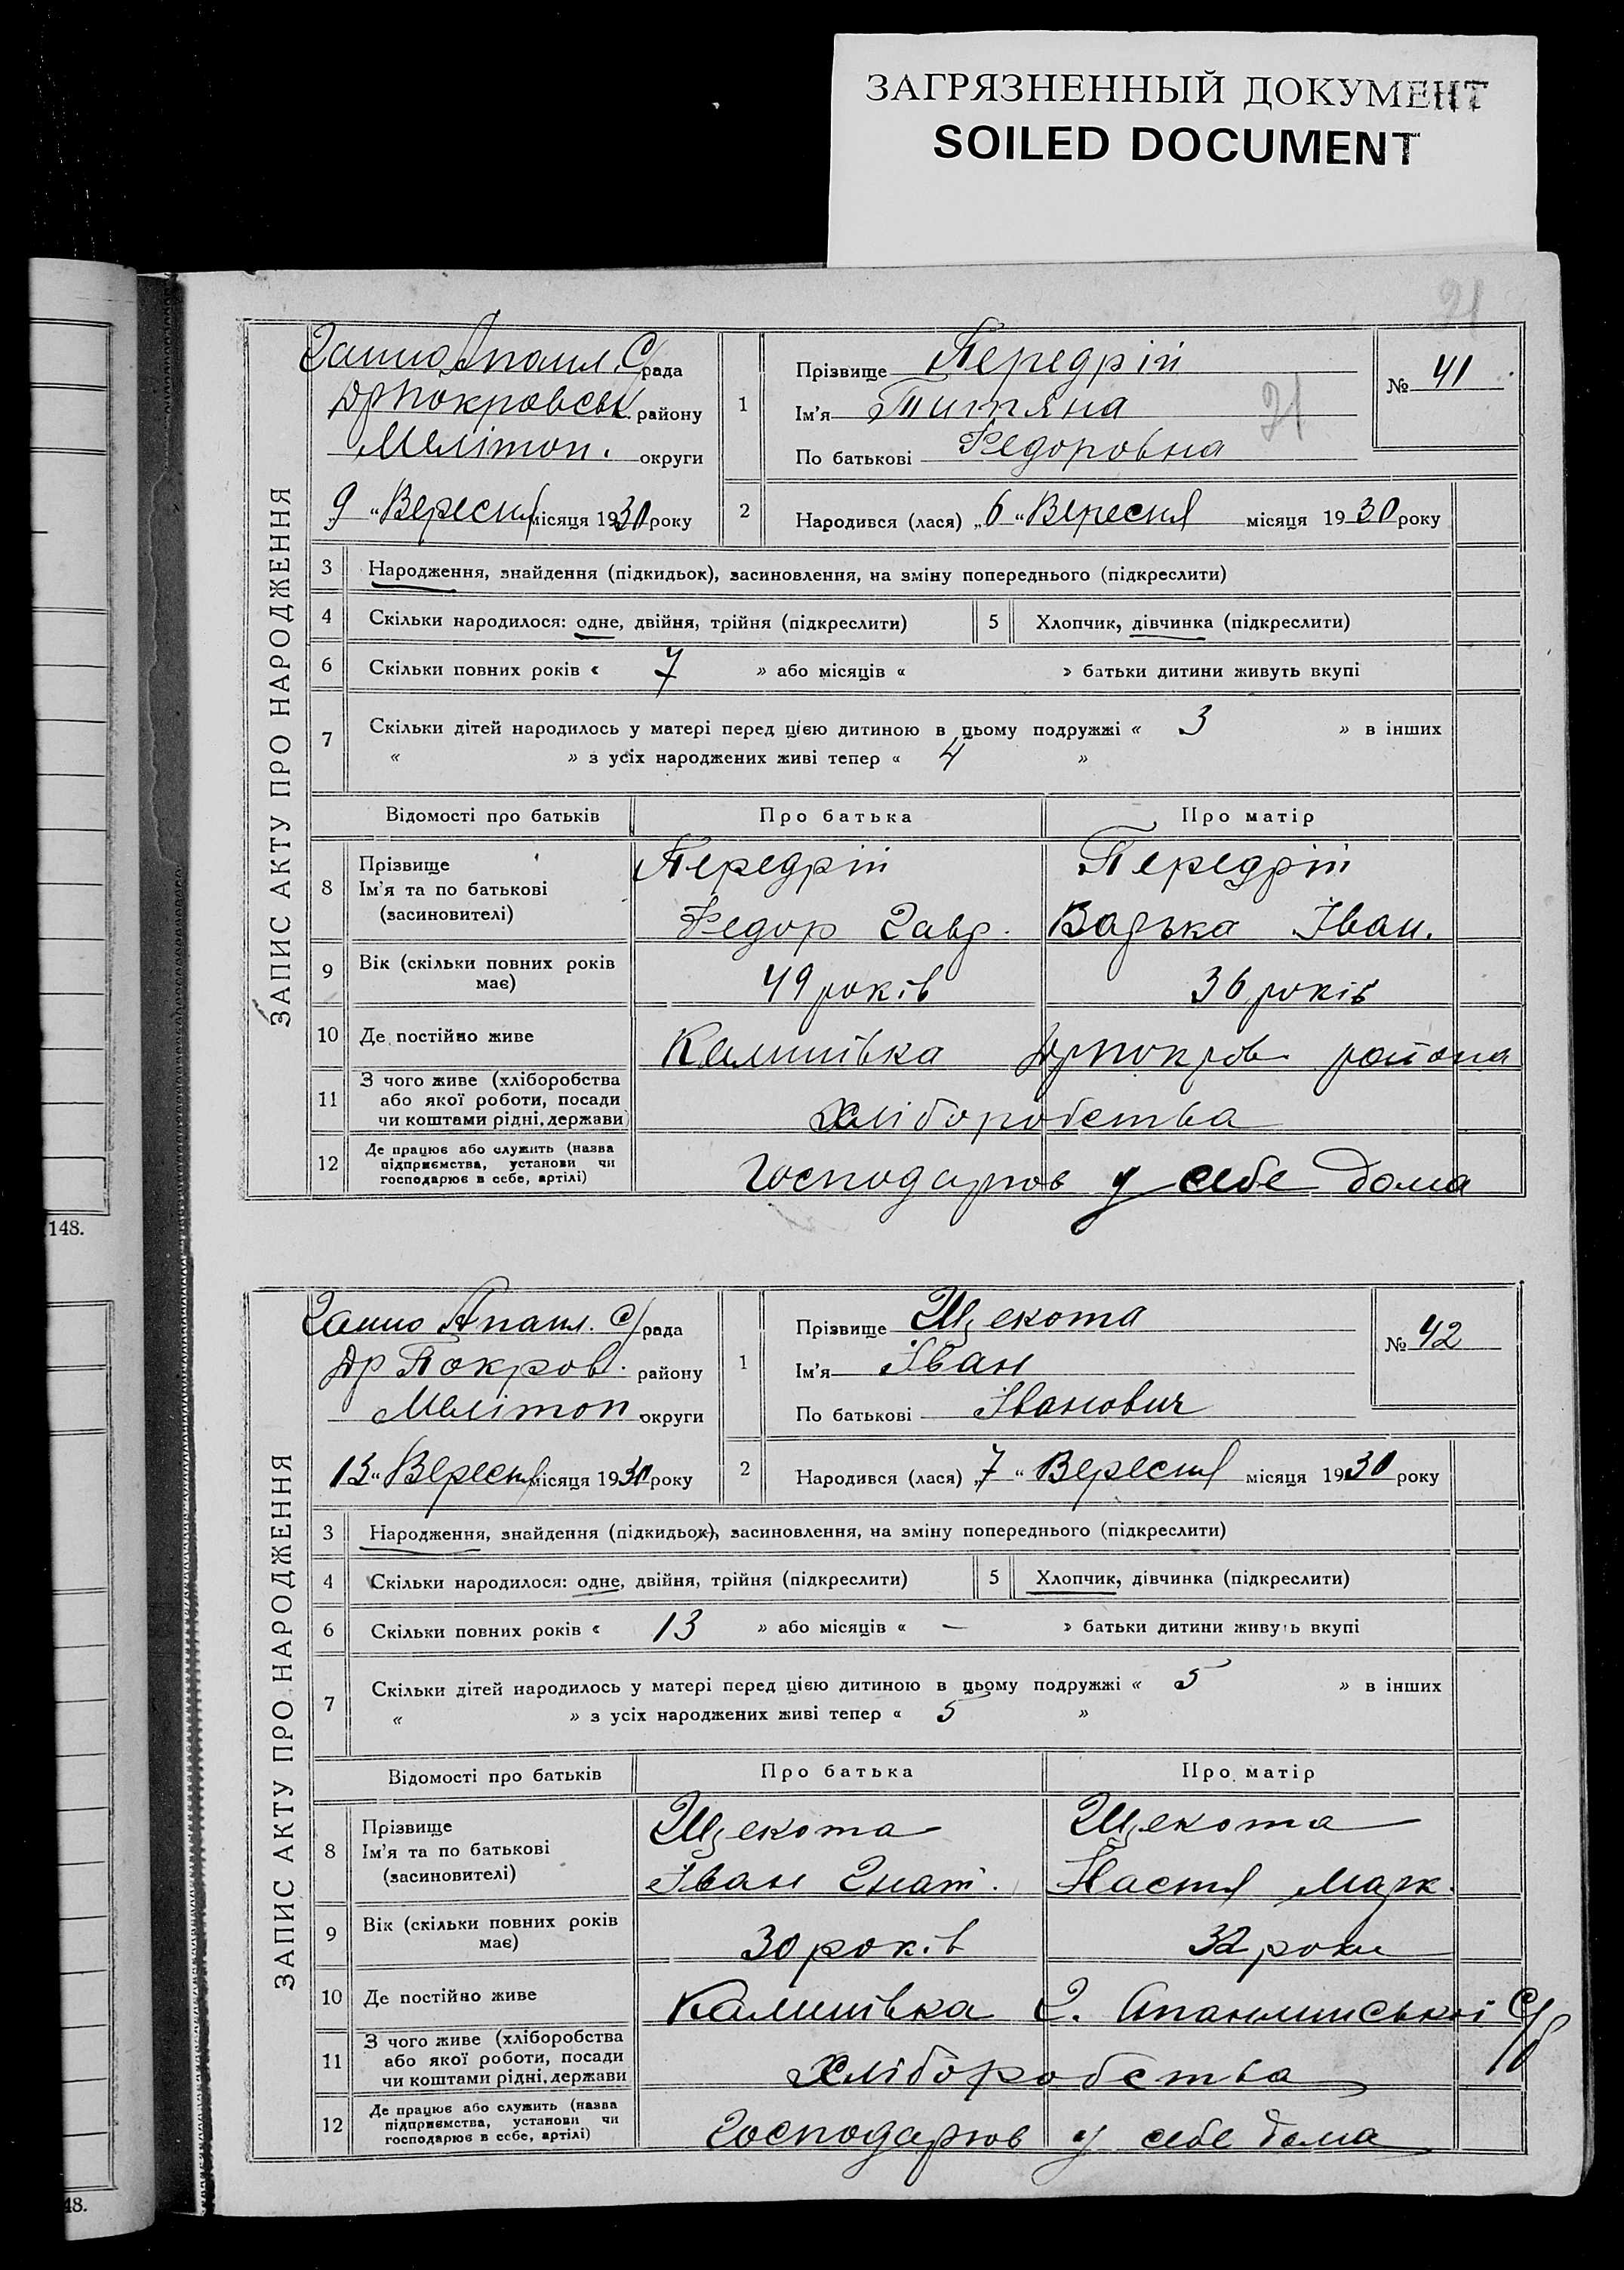 ЗАГРЯЗНЕННЫЙ ДОКУМЕНТ
SOILED DOCUMENT
21
ЗАПИС АКТУ ПРО НАРОДЖЕННЯ
Ганно Апанл. С/рада
Др Покровськ району
Мелітоп. округи
9 "Вересня місяця 1930 року
1
Прізвище Передрій
Ім'я Титяна
По батькові Федоровна
21
№ 41
2
Народився (лася) „6 "Вересня місяця 1930 року
3 Народження, знайдення (підкидьок), засиновлення, на зміну попереднього (підкреслити)
4 Скільки народилося: одне, двійня, трійня (підкреслити) 5 Хлопчик, дівчинка (підкреслити)
6 Скільки повних років « 7 » або місяців « » батьки дитини живуть вкупі
7 Скільки дітей народилось у матері перед цією дитиною в цьому подружжі « 3 » в інших
« » з усіх народжених живі тепер « 4 »
Відомості про батьків Про батька Про матір
8 Прізвище
Ім'я та по батькові
(засновителі)
Передрій Передрій
Федор Гавр. Іван.
9 Вік (скільки повних років має) 49 років 36 років
10 Де постійно живе Калинівка Др Покров. района
11 З чого живе (хліборобства
або якої роботи, посади
чи коштами рідні, держави)
хліборобства
12 Де працює або служить (назва
підприємства, установи чи
господарює в себе, артілі)
Господарюв у себе дома
148.
ЗАПИС АКТУ ПРО НАРОДЖЕННЯ
Ганно Апанл. С/рада
Др Покров. району
Мелітоп округи
13 "Вересня місяця 1930 року
1
Прізвище Щекота
Ім'я Іван
По батькові Іванович
№ 42
2
Народився (лася) „7 " Вересня місяця 1930 року
3 Народження, знайдення (підкидьок), засиновлення, на зміну попереднього (підкреслити)
4 Скільки народилося: одне, двійня, трійня (підкреслити) 5 Хлопчик, дівчинка (підкреслити)
6 Скільки повних років « 13 » або місяців « — » батьки дитини живуть вкупі
7 Скільки дітей народилось у матері перед цією дитиною в цьому подружжі « 5 » в інших
« » з усіх народжених живі тепер « 5 »
Відомості про батьків Про батька Про матір
8 Прізвище
Ім'я та по батькові
(засиновителі)
Щекота Щекота
Іван Гнат. Настя Марк.
9 Вік (скільки повних років має) 30 років 32 роки
10 Де постійно живе Калинівка Г. С/р
11 З чого живе (хліборобства
або якої роботи, посади
чи коштами рідні, держави
хліборобства
12 Де працює або служить (назва
підприємства, установи чи
господарює в себе, артілі)
Господарюв у себе дома
48.